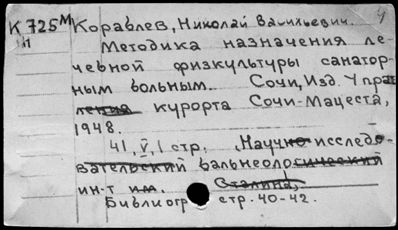 4
К 725м Коравлев, Николай Васильевич.
Методика назначения ле-
чебной физкультуры санатор-
ным больным. Сочи, Изд. Управ
ления курорта Сочи-Мацеста,
1948.
41, V, 1 стр. (Научно исследо-
вательский бальнеологический
ин-т им. Сталина).
Библиогр стр. 40-42.